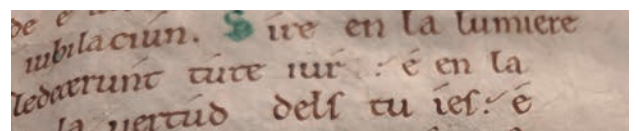 de e
iubilaciun. Sire en la lumiere
ledecerunt tute iur : é en la
la uertud dels tu ies : é